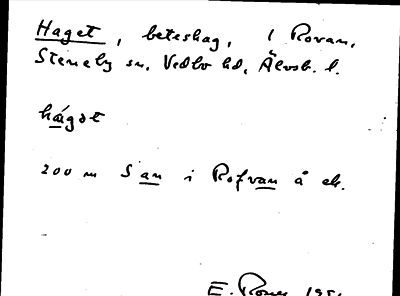 Haget, beteshag, 1 Rovan,
Steneby sn, Vedbo hd, Älvsb. l.
hágət
200 m S an i Rofvan å ek.
E. 195